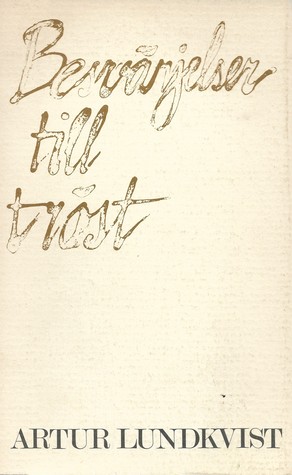 Besvärjelser
till
tröst
ARTUR LUNDKVIST